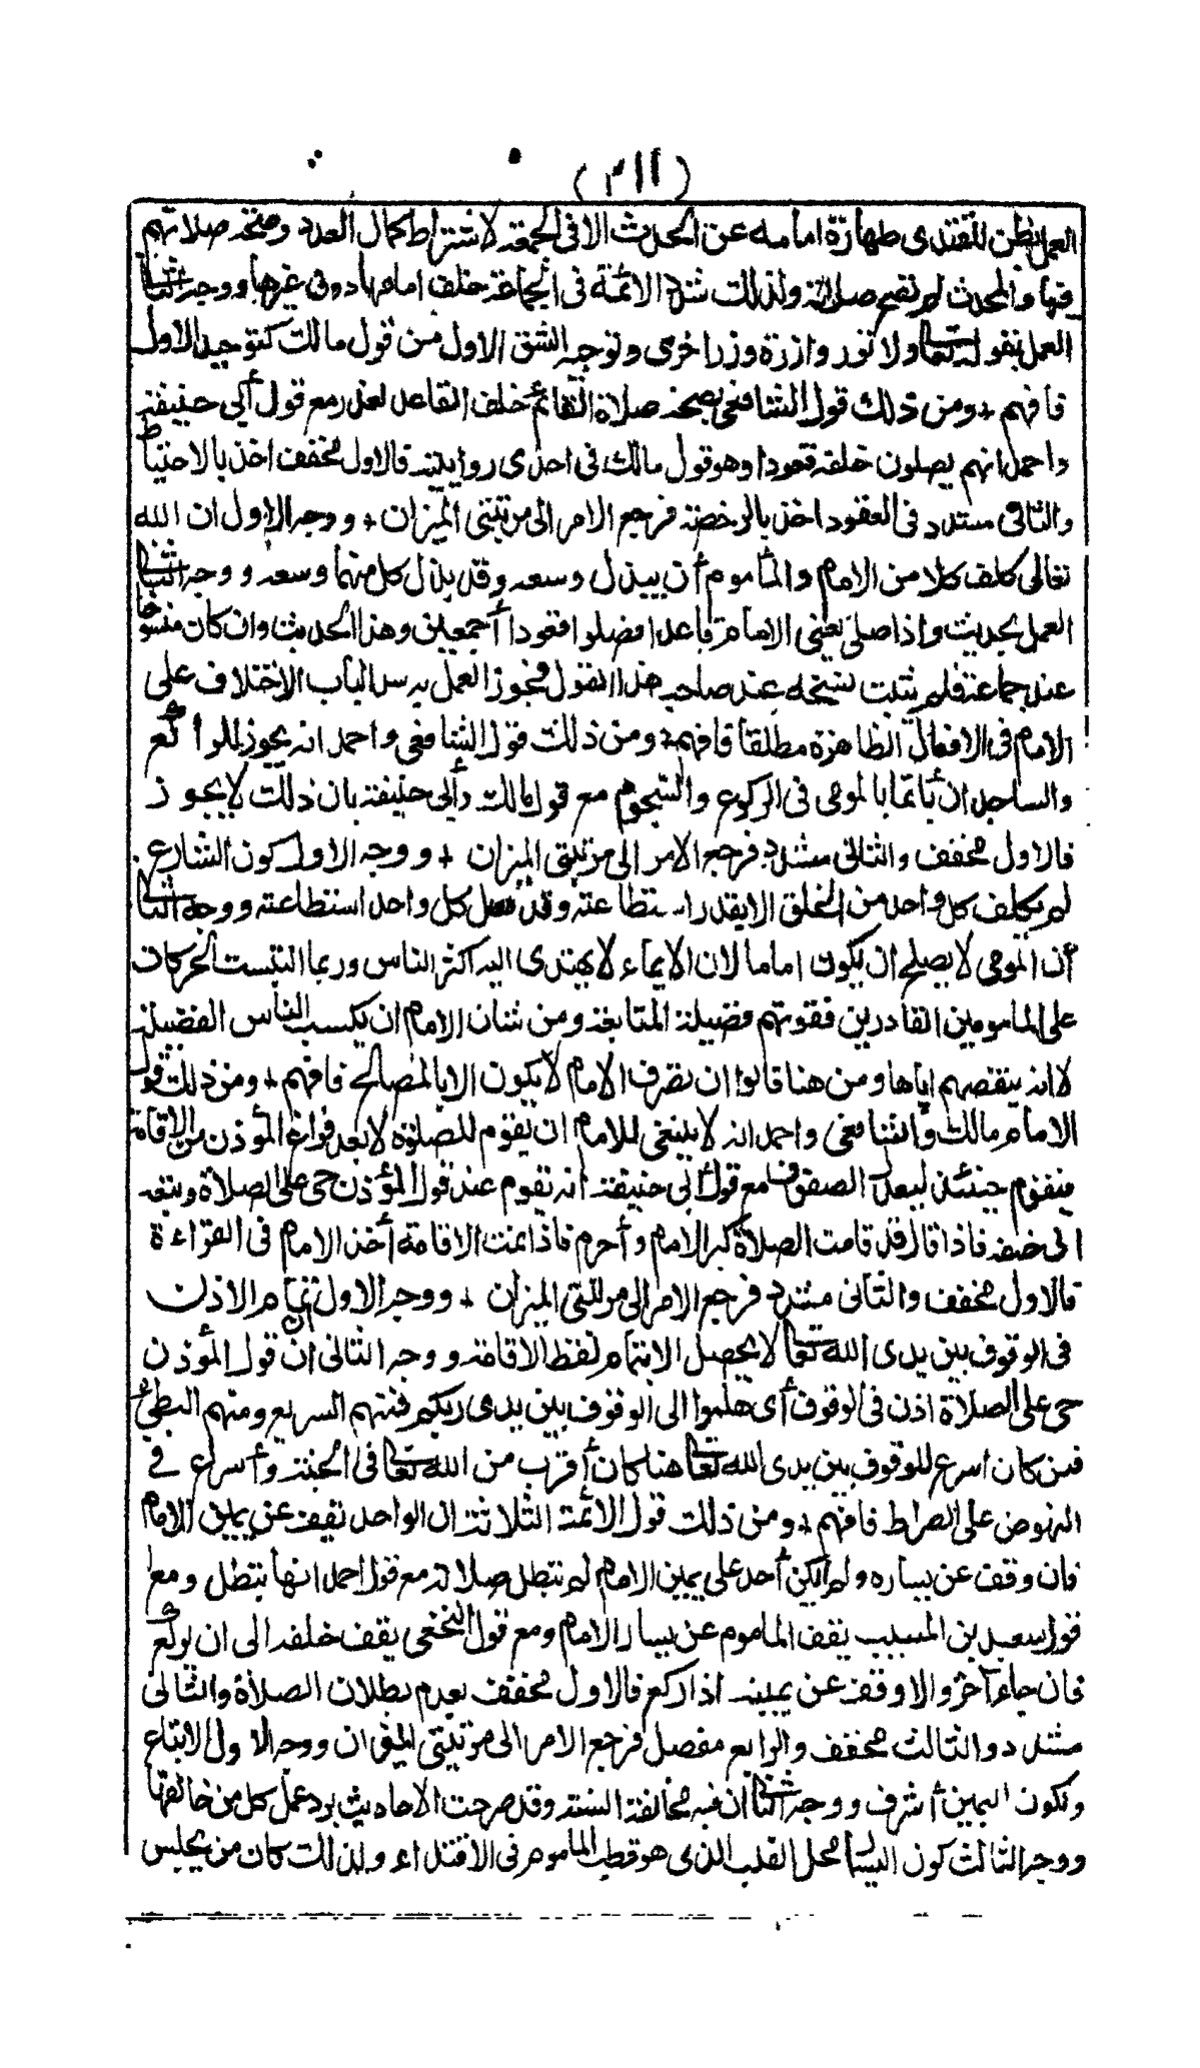 (٢١١)
العمل بظن المقتدى طهارة امامه عن الحدث الا فى الجمعة لاشتراط كمال العدد وصحة صلاتهم
فيها والمحدث لم تصح صلاته ولذلك شدد الائمة فى الجماعة خلف امامها دون غيرها ووجه الثانى
العمل بقوله تعالى ولا تزر وازرة وزر اخرى وتوجيه الشق الاول من قول مالك كتوجيه الاول
فافهم + ومن ذلك قول الشافعى بصحة صلاة القائم خلف القاعد لعذر مع قول أبى حنيفة
واحمد انهم يصلون خلفه قعودا وهو قول مالك فى احدى روايتيه فالاول مخفف اخذ بالاحتياط
والثانى مشدد فى العقود اخذ بالرخصة فرجع الامر الى مرتبتى الميزان + ووجه الاول ان الله
تعالى كلف كلا من الامام والمأموم أن يبذل وسعه وقد بذل كل منهما وسعه ووجه الثانى
العمل بحديث واذا صلى يعنى الامام قاعدا فصلوا قعودا أجمعين وهذا الحديث وان كان منسوخا
عند جماعة فلم يثبت نسخه عند صاحب هذا القول فجوز العمل به سدا لباب الاختلاف على
الامام فى الافعال الظاهرة مطلقا فافهم + ومن ذلك قول الشافعى واحمد انه يجوز للراكع
والساجد ان يأتما بالمومى فى الركوع والسجود مع قول مالك وأبى حنيفة بان ذلك لا يجوز
فالاول مخفف والثانى مشدد فرجع الامر الى مرتبتى الميزان + ووجه الاول كون الشارع
لم يكلف كل واحد من الخلق الا بقدر استطاعته وقد بذل كل واحد استطاعته ووجه الثانى
أن المومى لا يصلح ان يكون اماما لان الايماء لا يهتدى اليه اكثر الناس وربما التبست الحركات
على المامومين القادرين ففوتهم فضيلة المتابعة ومن شان الامام ان يكسب الناس الفضيلة
لا انه ينقصهم اياها ومن هنا قالوا ان تصرف الامام لا يكون الا بالمصالح فافهم + ومن ذلك قول
الامام مالك والشافعى واحمد انه لا ينبغى للامام ان يقوم للصلوة الا بعد فراغ المؤذن من الاقامة
فيقوم حينئذ ليعدل الصفوف مع قول أبى حنيفة انه يقوم عند قول المؤذن حى على الصلاة ويتبعه
الى خلفه فاذا قال قد قامت الصلاة كبر الامام وأحرم فاذا تمت الاقامة أخذ الامام فى القراءة
فالاول مخفف والثانى مشدد فرجع الامر الى مرتبتى الميزان + ووجه الاول ان تمام الاذن
فى الوقوف بين يدى الله تعالى لا يحصل الا بتمام لفظ الاقامة ووجه الثانى ان قول المؤذن
حى على الصلاة اذن فى الوقوف أى هلموا الى الوقوف بين يدى ربكم فمنهم السريع ومنهم البطئ
فمن كان اسرع للوقوف بين يدى الله تعالى هنا كان أقرب من الله تعالى فى الجنة وأسرع فى
النهوض على الصراط فافهم + ومن ذلك قول الائمة الثلاثة ان الواحد يقف عن يمين الامام
فان وقف عن يساره ولم يكن أحد على يمين الامام لم تبطل صلاته مع قول احمد انها تبطل ومع
قول سعيد بن المسيب يقف الماموم عن يسار الامام ومع قول النخعى يقف خلفه الى ان يركع
فان جاء آخر والا وقف عن يمينه اذا ركع فالاول مخفف بعدم بطلان الصلاة والثانى
مشدد والثالث مخفف والرابع مفصل فرجع الامر الى مرتبتى الميزان ووجه الاول الاتباع
ولكون اليمين أشرف ووجه الثانى ان فيه مخالفة السنة وقد صرحت الاحاديث برد عمل كل من خالفها
ووجه الثالث كون اليسار محل القلب الذى هو قطب الماموم فى الاقتداء ولذلك كان من يجلس